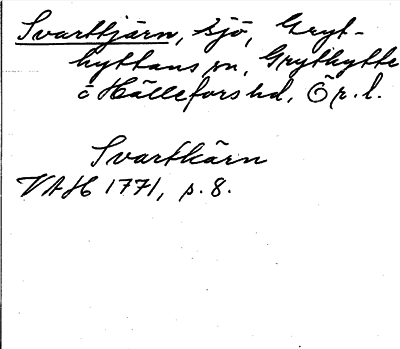 Svarttjärn, sjö, Gryt-
hyttans sn, Grythytte
o Hällefors hd, Ör. l.
Svartkärn
VAH 1771, p. 8.